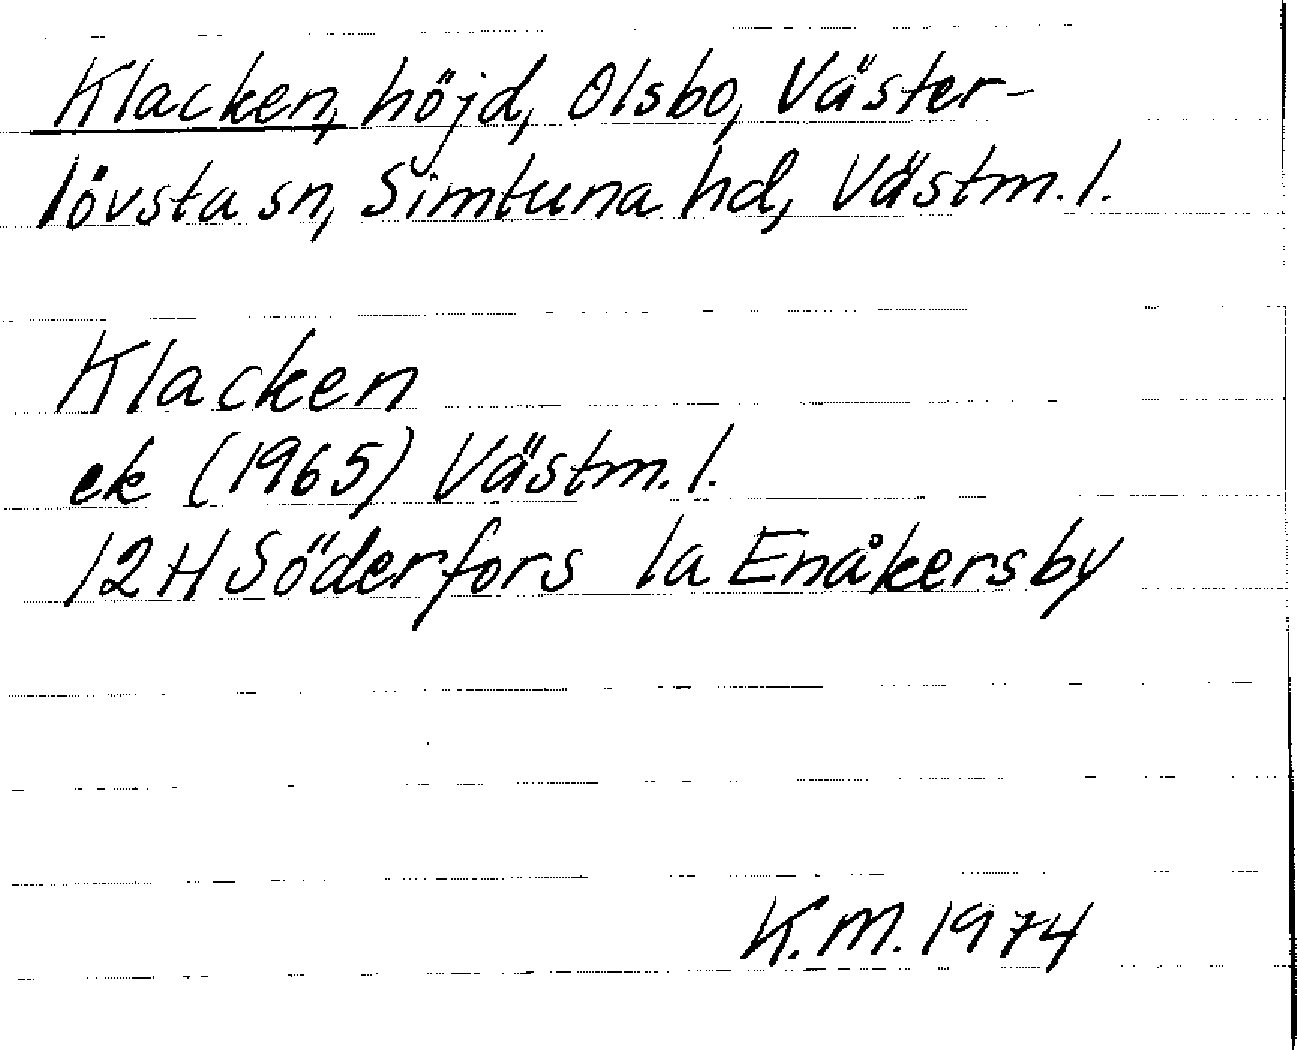 Klacken, höjd, Olsbo, Väster-
lövsta sn, Simtuna hd, Västm.l.
Klacken
ek (1965) Västm.l.
12H Söderfors 1a Enåkersby
K.M. 1974